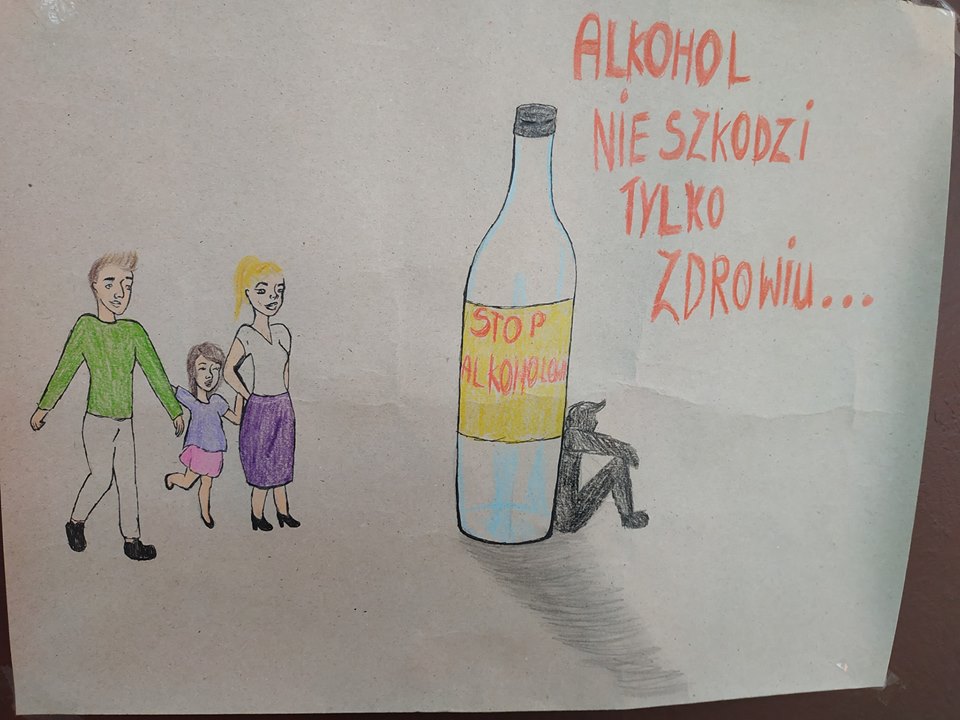 ALKOHOL
NIE SZKODZI
TYLKO
ZDROWIU...
STOP
ALKOHOLOWI